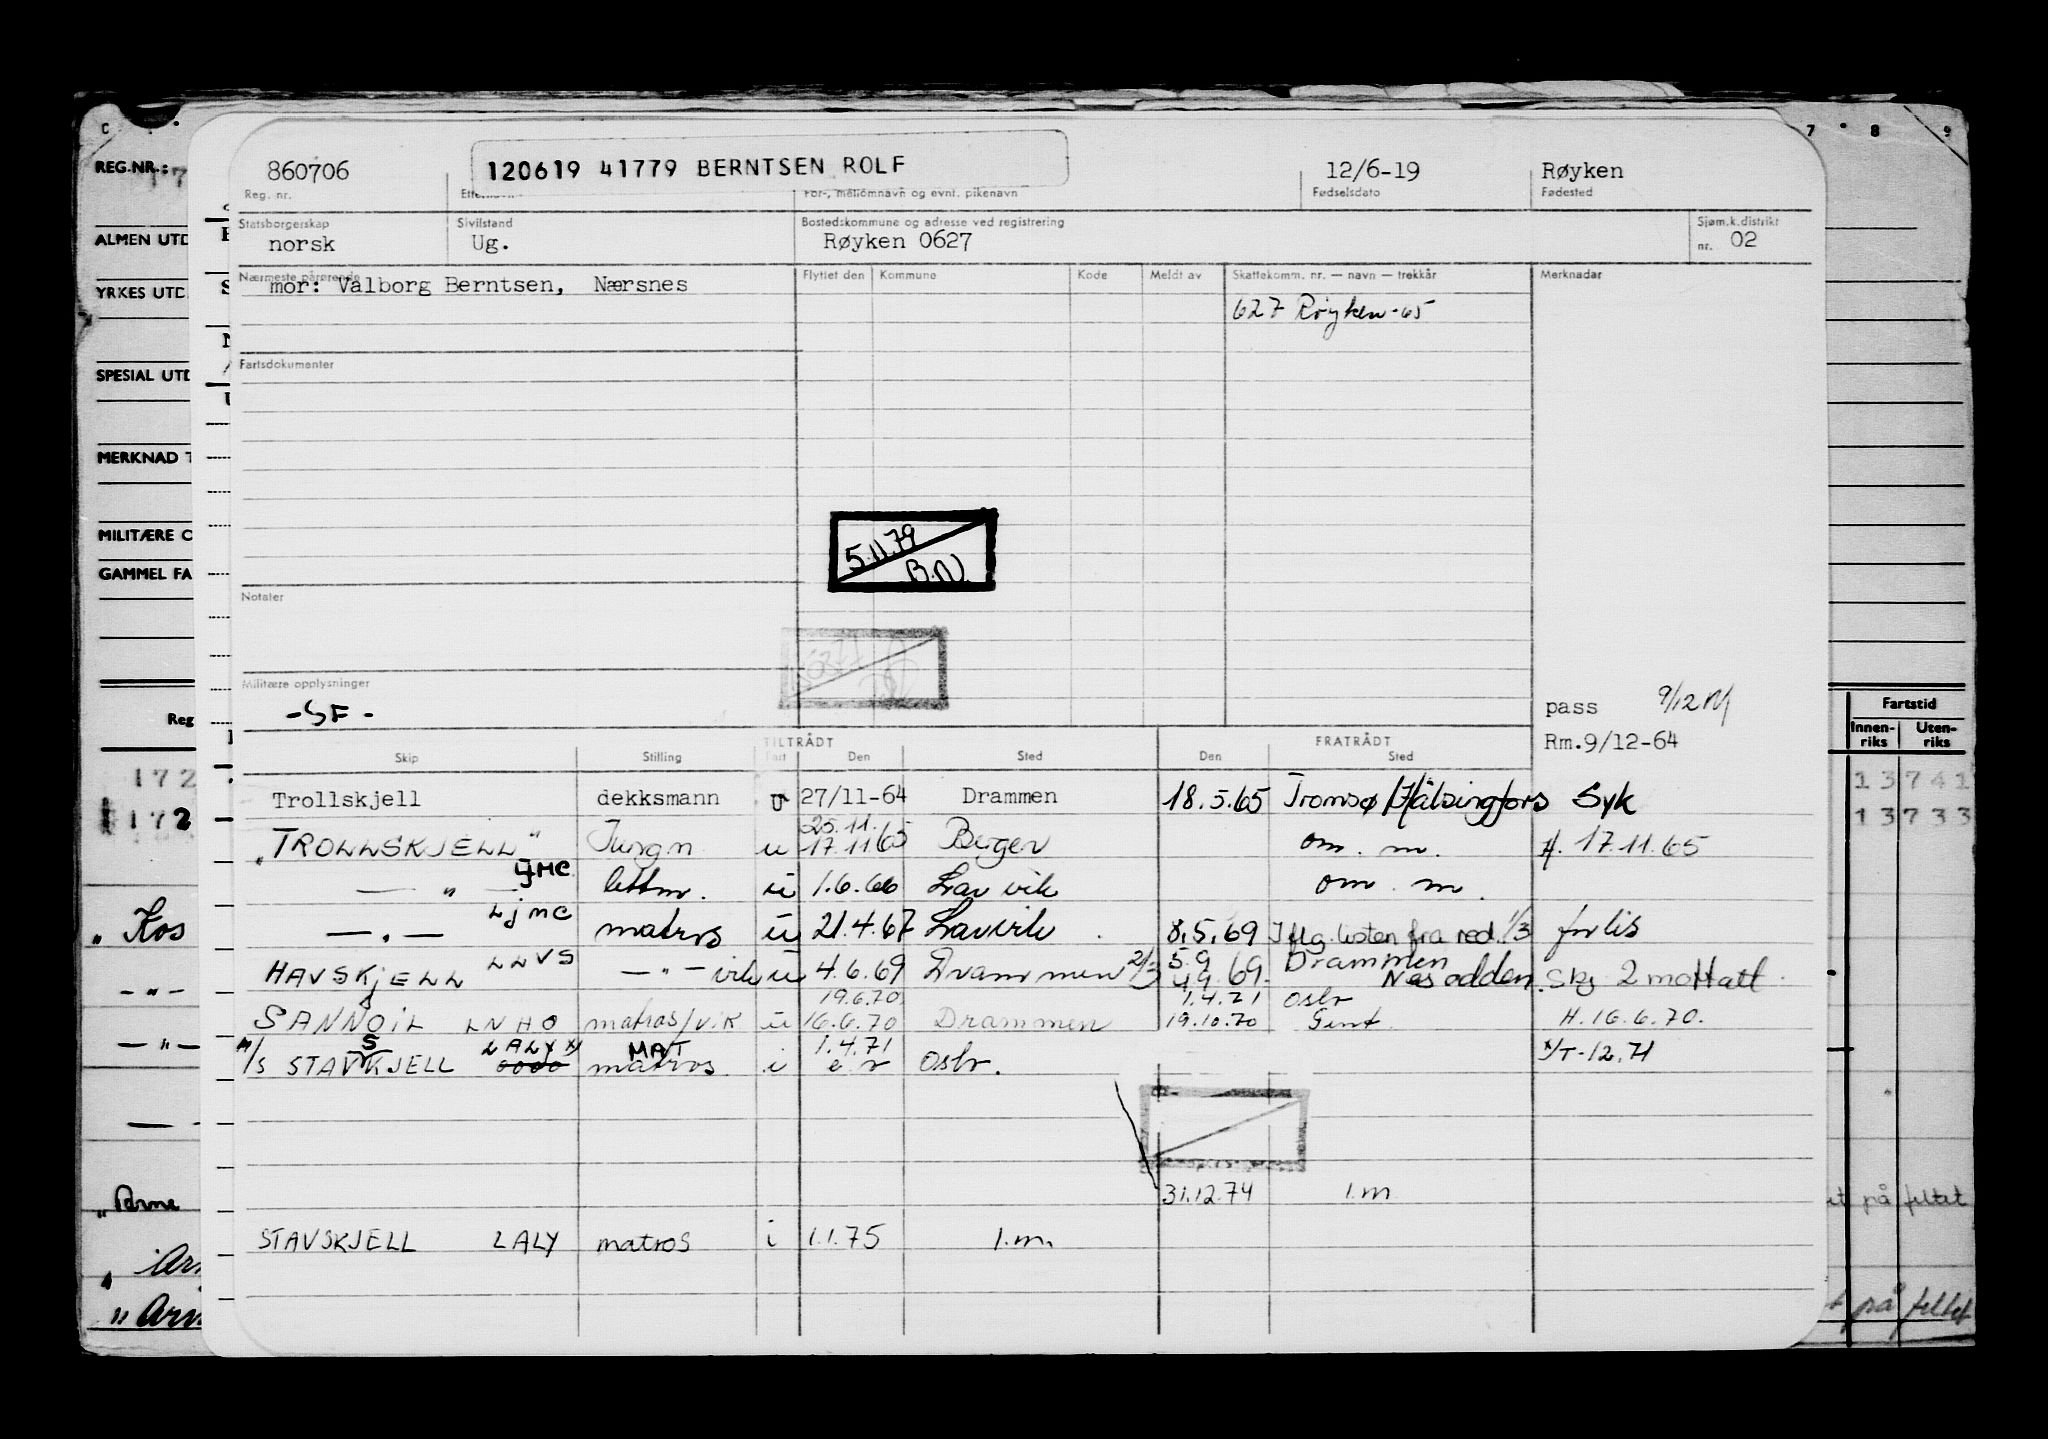 C 7 8 9
REG.NR.: 17
860706 120619 41779 BERNTSEN ROLF 12/6-19 Røyken
Reg. nr. For-, mellomnavn og evnt. pikenavn Fødselsdato Fødested
Statsborgerskap Sivilstand Bostedskommune og adresse ved registrering Sjøm.k.distrikt
ALMEN UTD norsk Ug. Røyken 0627 nr. 02
Nærmeste pårørende Flyttet den Kommune Kode Meldt av Skattekomm. nr. — navn — trekkår Merknader
YRKES UTD. mor: Valborg Berntsen, Nærsnes
627 Røyken -65
SPESIAL UTD Fartsdokumenter
MERKNAD T
MILITÆRE O
5.11.79
GAMMEL FA B.N.
Notater
Militære opplysninger
pass 9/12
Reg Fartstid
TILTRÅDT FRATRÅDT Rm.9/12-64 Innenriks Utenriks
Skip Stilling Fart Den Sted Den Sted
172 13741
Trollskjell dekksmann 27/11-64 Drammen 18.5.65 Tromsø/Hälsingfors Syk
172 13733
25.11.
"TROLLSKJELL" Jungm u 17.11.65 Bergen om. m. H. 17.11.65
LJMC
— " — lettm. u 1.6.66 Lavvik om. m.
LJMC
" Kos — " — matros u 21.4.67 Lavvik 8.5.69 Iflg. listen fra red. 1/3 forlis
HAVSKJELL LLVS — " — vik u 4.6.69 Drammen 2/3 5.9 69. Drammen Nesodden. Skj 2 mottatt.
19.6.70 1.4.71 Oslo
SANNOIL LNHO matros/vik u 16.6.70 Drammen 19.10.70 Gent. H. 16.6.70.
S LALY x/ MAT 1.4.71
M/S STAVKJELL matros i Oslo. x/T-12.71
31.12.74 1.m
" Perne et på feltet
STAVSKJELL LALY matros i 1.1.75 1.m.
" Ar
" Arn på feltet